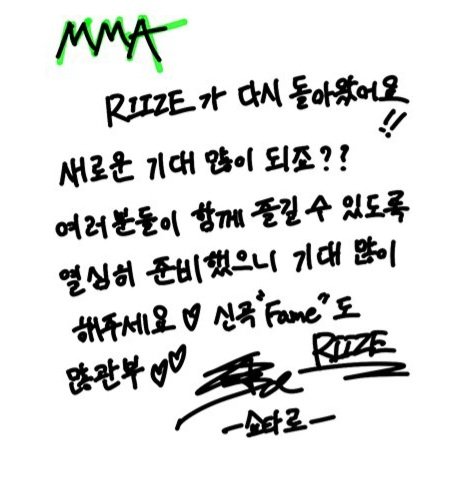 MMA
RIIZE가 다시 돌아왔어요
!!
새로운 기대 많이 되죠??
여러분들이 함께 즐길 수 있도록
열심히 준비했으니 기대 많이
해주세요♡ 신곡 "Fame"도
많관부♡♡
RIIZE
-쇼타로-